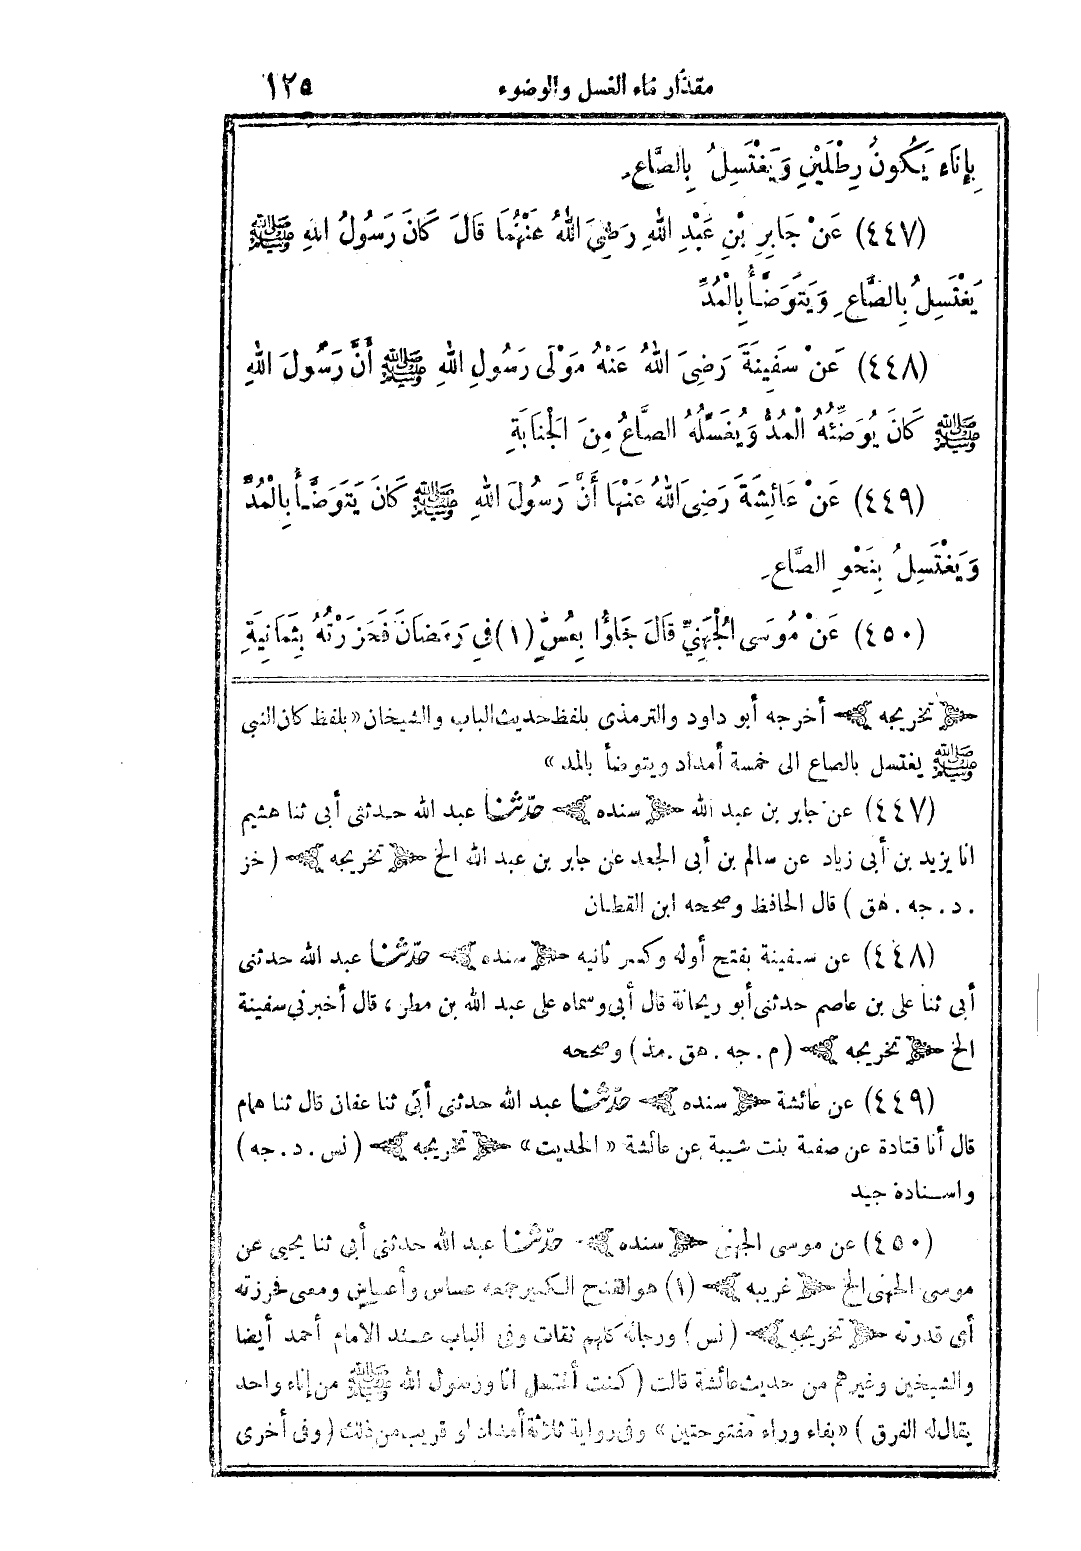 مقدار ماء الغسل والوضوء ١٢٥
بِإِنَاءٍ يَكُونُ رِطْلَيْنِ وَيَغْتَسِلُ بِالصَّاعِ
(٤٤٧) عَنْ جَابِرِ بْنِ عَبْدِ اللهِ رَضِيَ اللهُ عَنْهُمَا قَالَ كَانَ رَسُولُ اللهِ ﷺ
يَغْتَسِلُ بِالصَّاعِ وَيَتَوَضَّأُ بِالْمُدِّ
(٤٤٨) عَنْ سَفِينَةَ رَضِيَ اللهُ عَنْهُ مَوْلَى رَسُولِ اللهِ ﷺ أَنَّ رَسُولَ اللهِ
ﷺ كَانَ يُوَضِّئُهُ الْمُدُّ وَيُغَسِّلُهُ الصَّاعُ مِنَ الْجَنَابَةِ
(٤٤٩) عَنْ عَائِشَةَ رَضِيَ اللهُ عَنْهَا أَنَّ رَسُولَ اللهِ ﷺ كَانَ يَتَوَضَّأُ بِالْمُدِّ
وَيَغْتَسِلُ بِنَحْوِ الصَّاعِ
(٤٥٠) عَنْ مُوسَى الْجُهَنِيِّ قَالَ جَاؤُا بِعُسٍّ (١) فِي رَمَضَانَ فَحَزَرْتُهُ بِثَمَانِيَةِ
تخريجه أخرجه أبو داود والترمذى بلفظ حديث الباب والشيخان «بلفظ كان النبي
ﷺ يغتسل بالصاع الى خمسة أمداد ويتوضأ بالمد»
(٤٤٧) عن جابر بن عبد الله سنده حدّثنا عبد الله حدثنى أبى ثنا هشيم
انا يزيد بن أبى زياد عن سالم بن أبى الجعد عن جابر بن عبد الله الخ تخريجه (خز
. د . جه . هق) قال الحافظ وصححه ابن القطان
(٤٤٨) عن سفينة بفتح أوله وكسر ثانيه سنده حدّثنا عبد الله حدثنى
أبى ثنا على بن عاصم حدثنى أبو ريحانة قال أبى وسماه على عبد الله بن مطر ، قال أخبرنى سفينة
الخ تخريجه (م . جه . هق . مذ) وصححه
(٤٤٩) عن عائشة سنده حدّثنا عبد الله حدثنى أبى ثنا عفان قال ثنا همام
قال أنا قتادة عن صفية بنت شيبة عن عائشة «الحديث» تخريجه (نس . د . جه)
واسنادة جيد
(٤٥٠) عن موسى الجهنى سنده حدّثنا عبد الله حدثنى أبى ثنا يحيى عن
موسى الجهنى الخ غريبه (١) هو القدح الكبير جمعه عساس وأعساس ومعنى فحزرته
أى قدرته تخريجه (نس) ورجاله كلهم ثقات وفى الباب عند الامام أحمد أيضا
والشيخين وغيرهم من حديث عائشة قالت (كنت أغتسل انا ورسول الله ﷺ من إناء واحد
يقال له الفرق) «بفاء وراء مفتوحتين» وفى رواية ثلاثة أمداد او قريب من ذلك (وفى أخرى